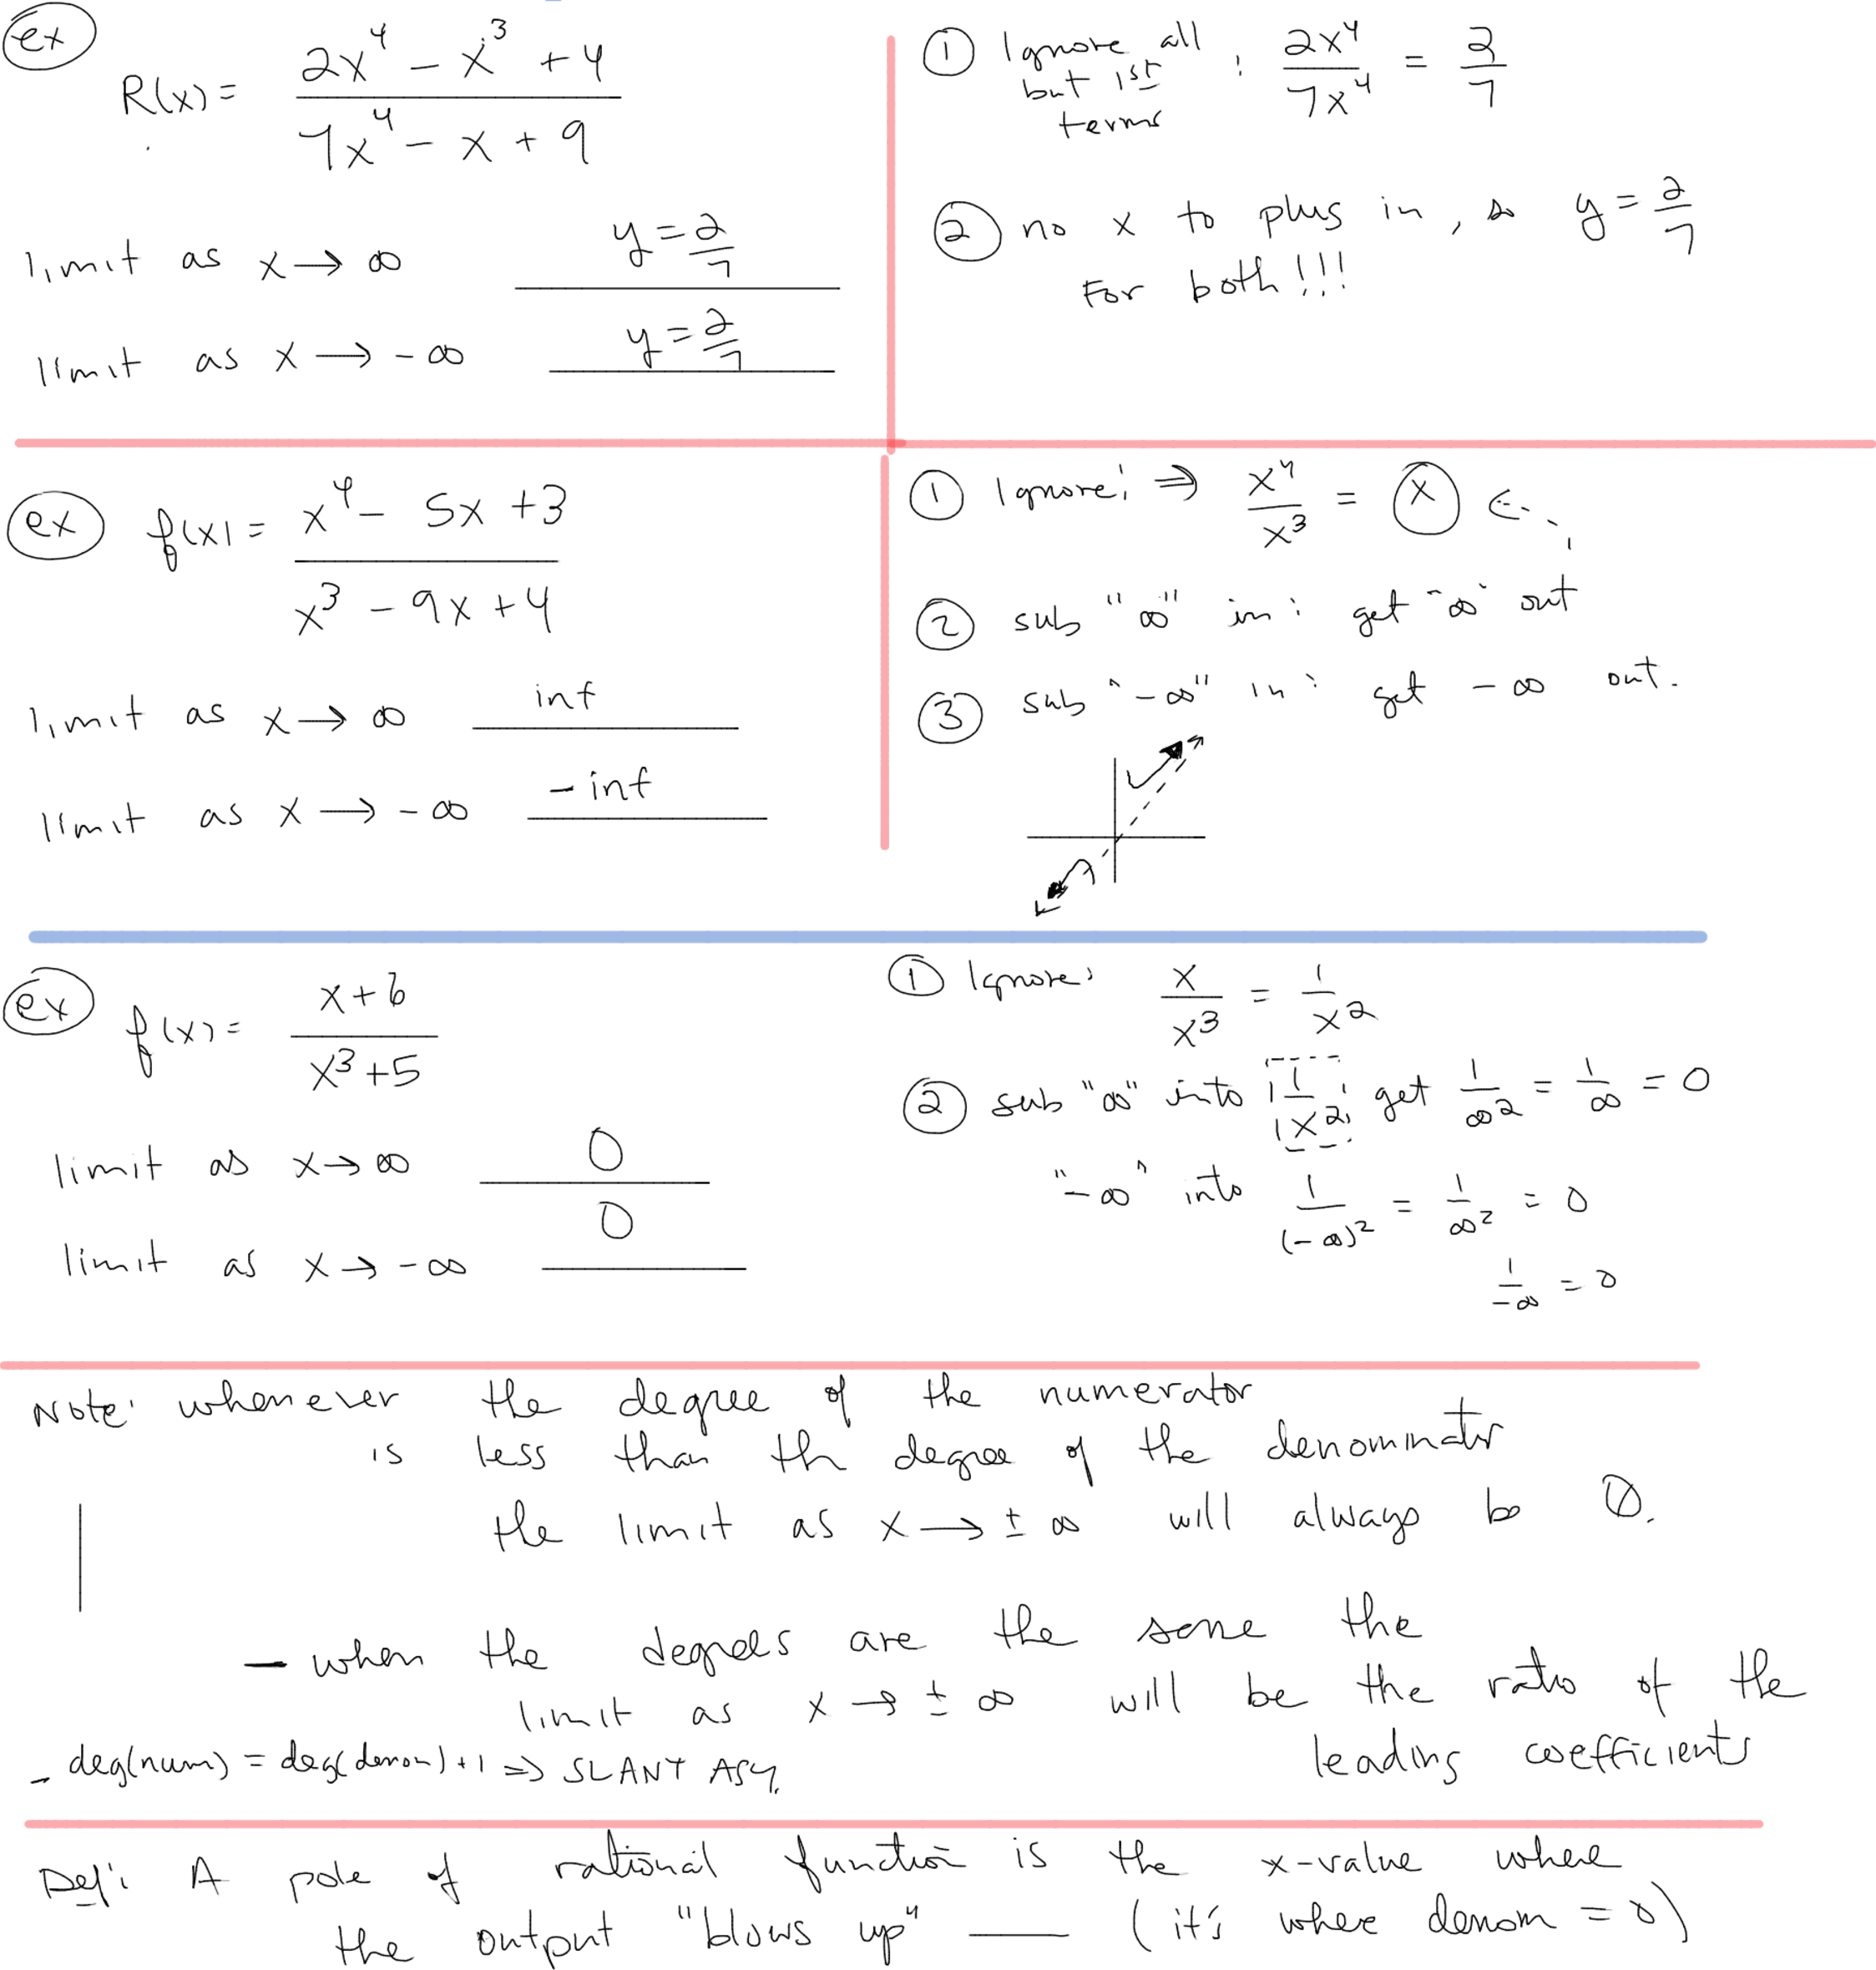 ex
R(x) = (2x⁴ - x³ + 4) / (7x⁴ - x + 9)
limit as x → ∞ y = 2/7
limit as x → -∞ y = 2/7
① Ignore all but 1st terms : 2x⁴/7x⁴ = 2/7
② no x to plus in, so y = 2/7
For both!!!
ex
f(x) = (x⁴ - 5x + 3) / (x³ - 9x + 4)
limit as x → ∞ inf
limit as x → -∞ -inf
① Ignore: ⇒ x⁴/x³ = x ←
② sub "∞" in: get "∞" out
③ sub "-∞" in: get -∞ out.
ex
f(x) = (x + 6) / (x³ + 5)
limit as x → ∞ 0
limit as x → -∞ 0
① Ignore: x/x³ = 1/x²
② sub "∞" into 1/x² get 1/∞² = 1/∞ = 0
"-∞" into 1/(-∞)² = 1/∞² = 0
1/-∞ = 0
Note: whenever the degree of the numerator
is less than th degree of the denominator
the limit as x → ± ∞ will always be 0.
- when the degrees are the same the
limit as x → ± ∞ will be the ratio of the
leading coefficients
- deg(num) = deg(denom) + 1 ⇒ SLANT ASY.
Def: A pole of rational function is the x-value where
the output "blows up" — (it's where denom = 0)